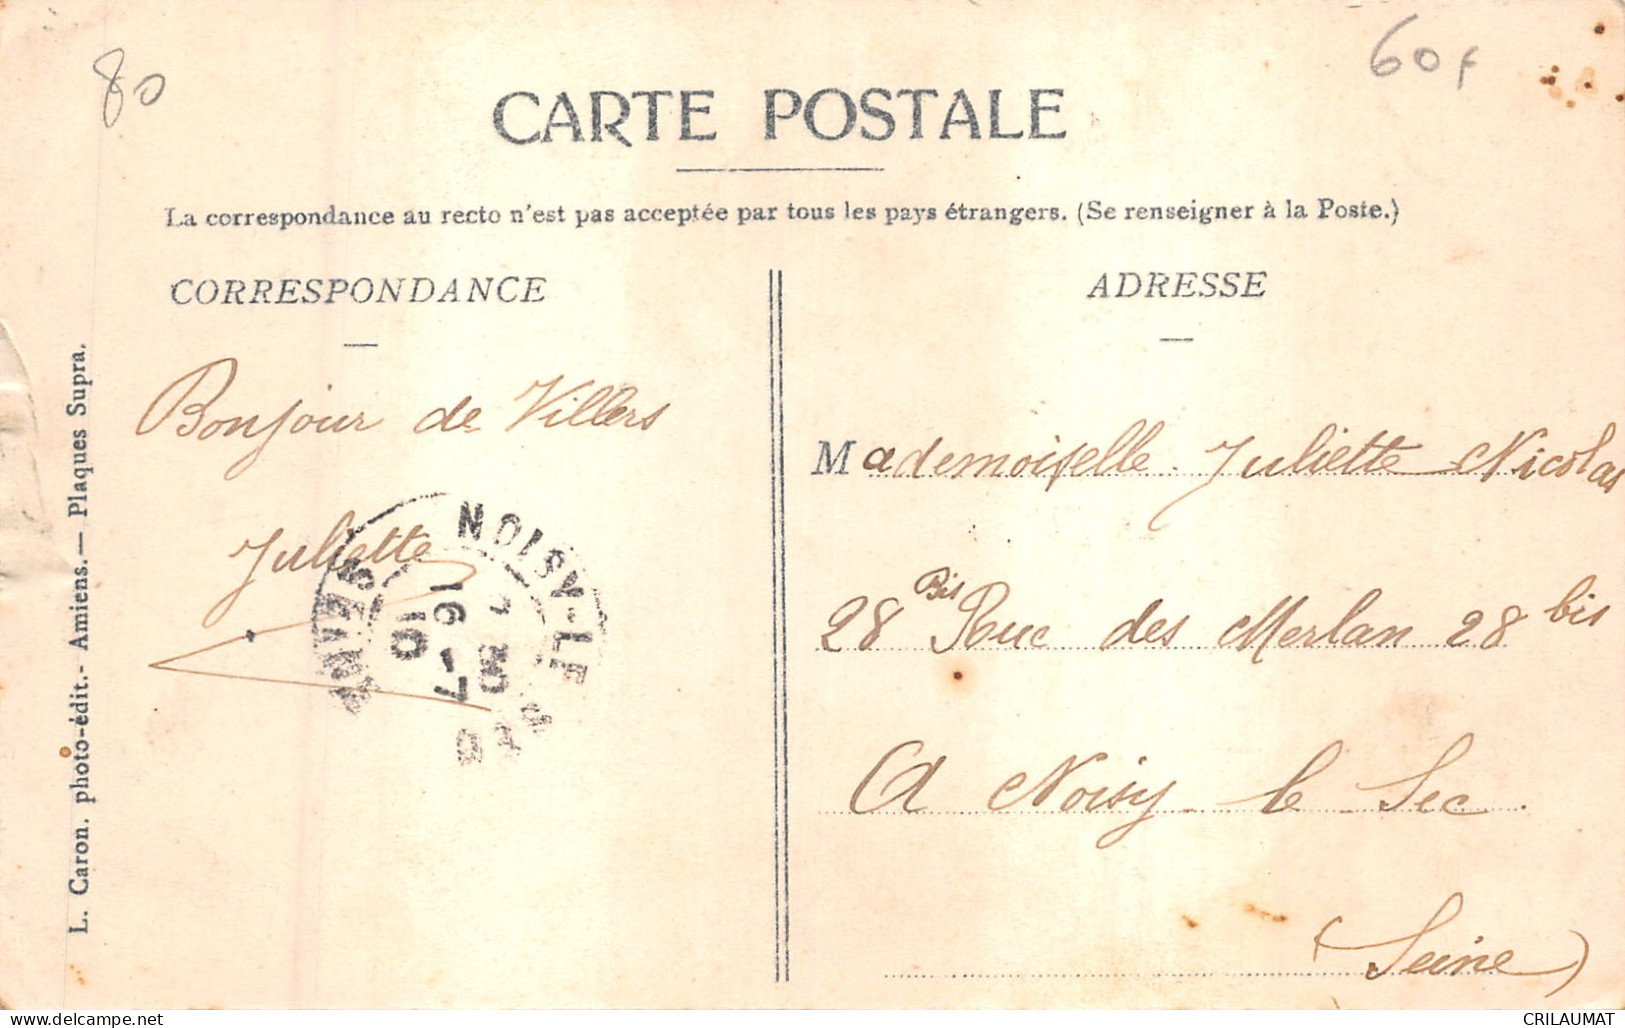 80
60f
CARTE POSTALE
La correspondance au recto n'est pas acceptée par tous les pays étrangers. (Se renseigner à la Poste.)
CORRESPONDANCE
ADRESSE
Bonjour de Villers
Juliette
NOISY-LE-SEC
SEINE
16-7
10
Mademoiselle Juliette Nicolas
28 Bis Rue des Merlan 28 bis
A Noisy le Sec
(Seine)
L. Caron. photo-édit.- Amiens.— Plaques Supra.
CRILAUMAT